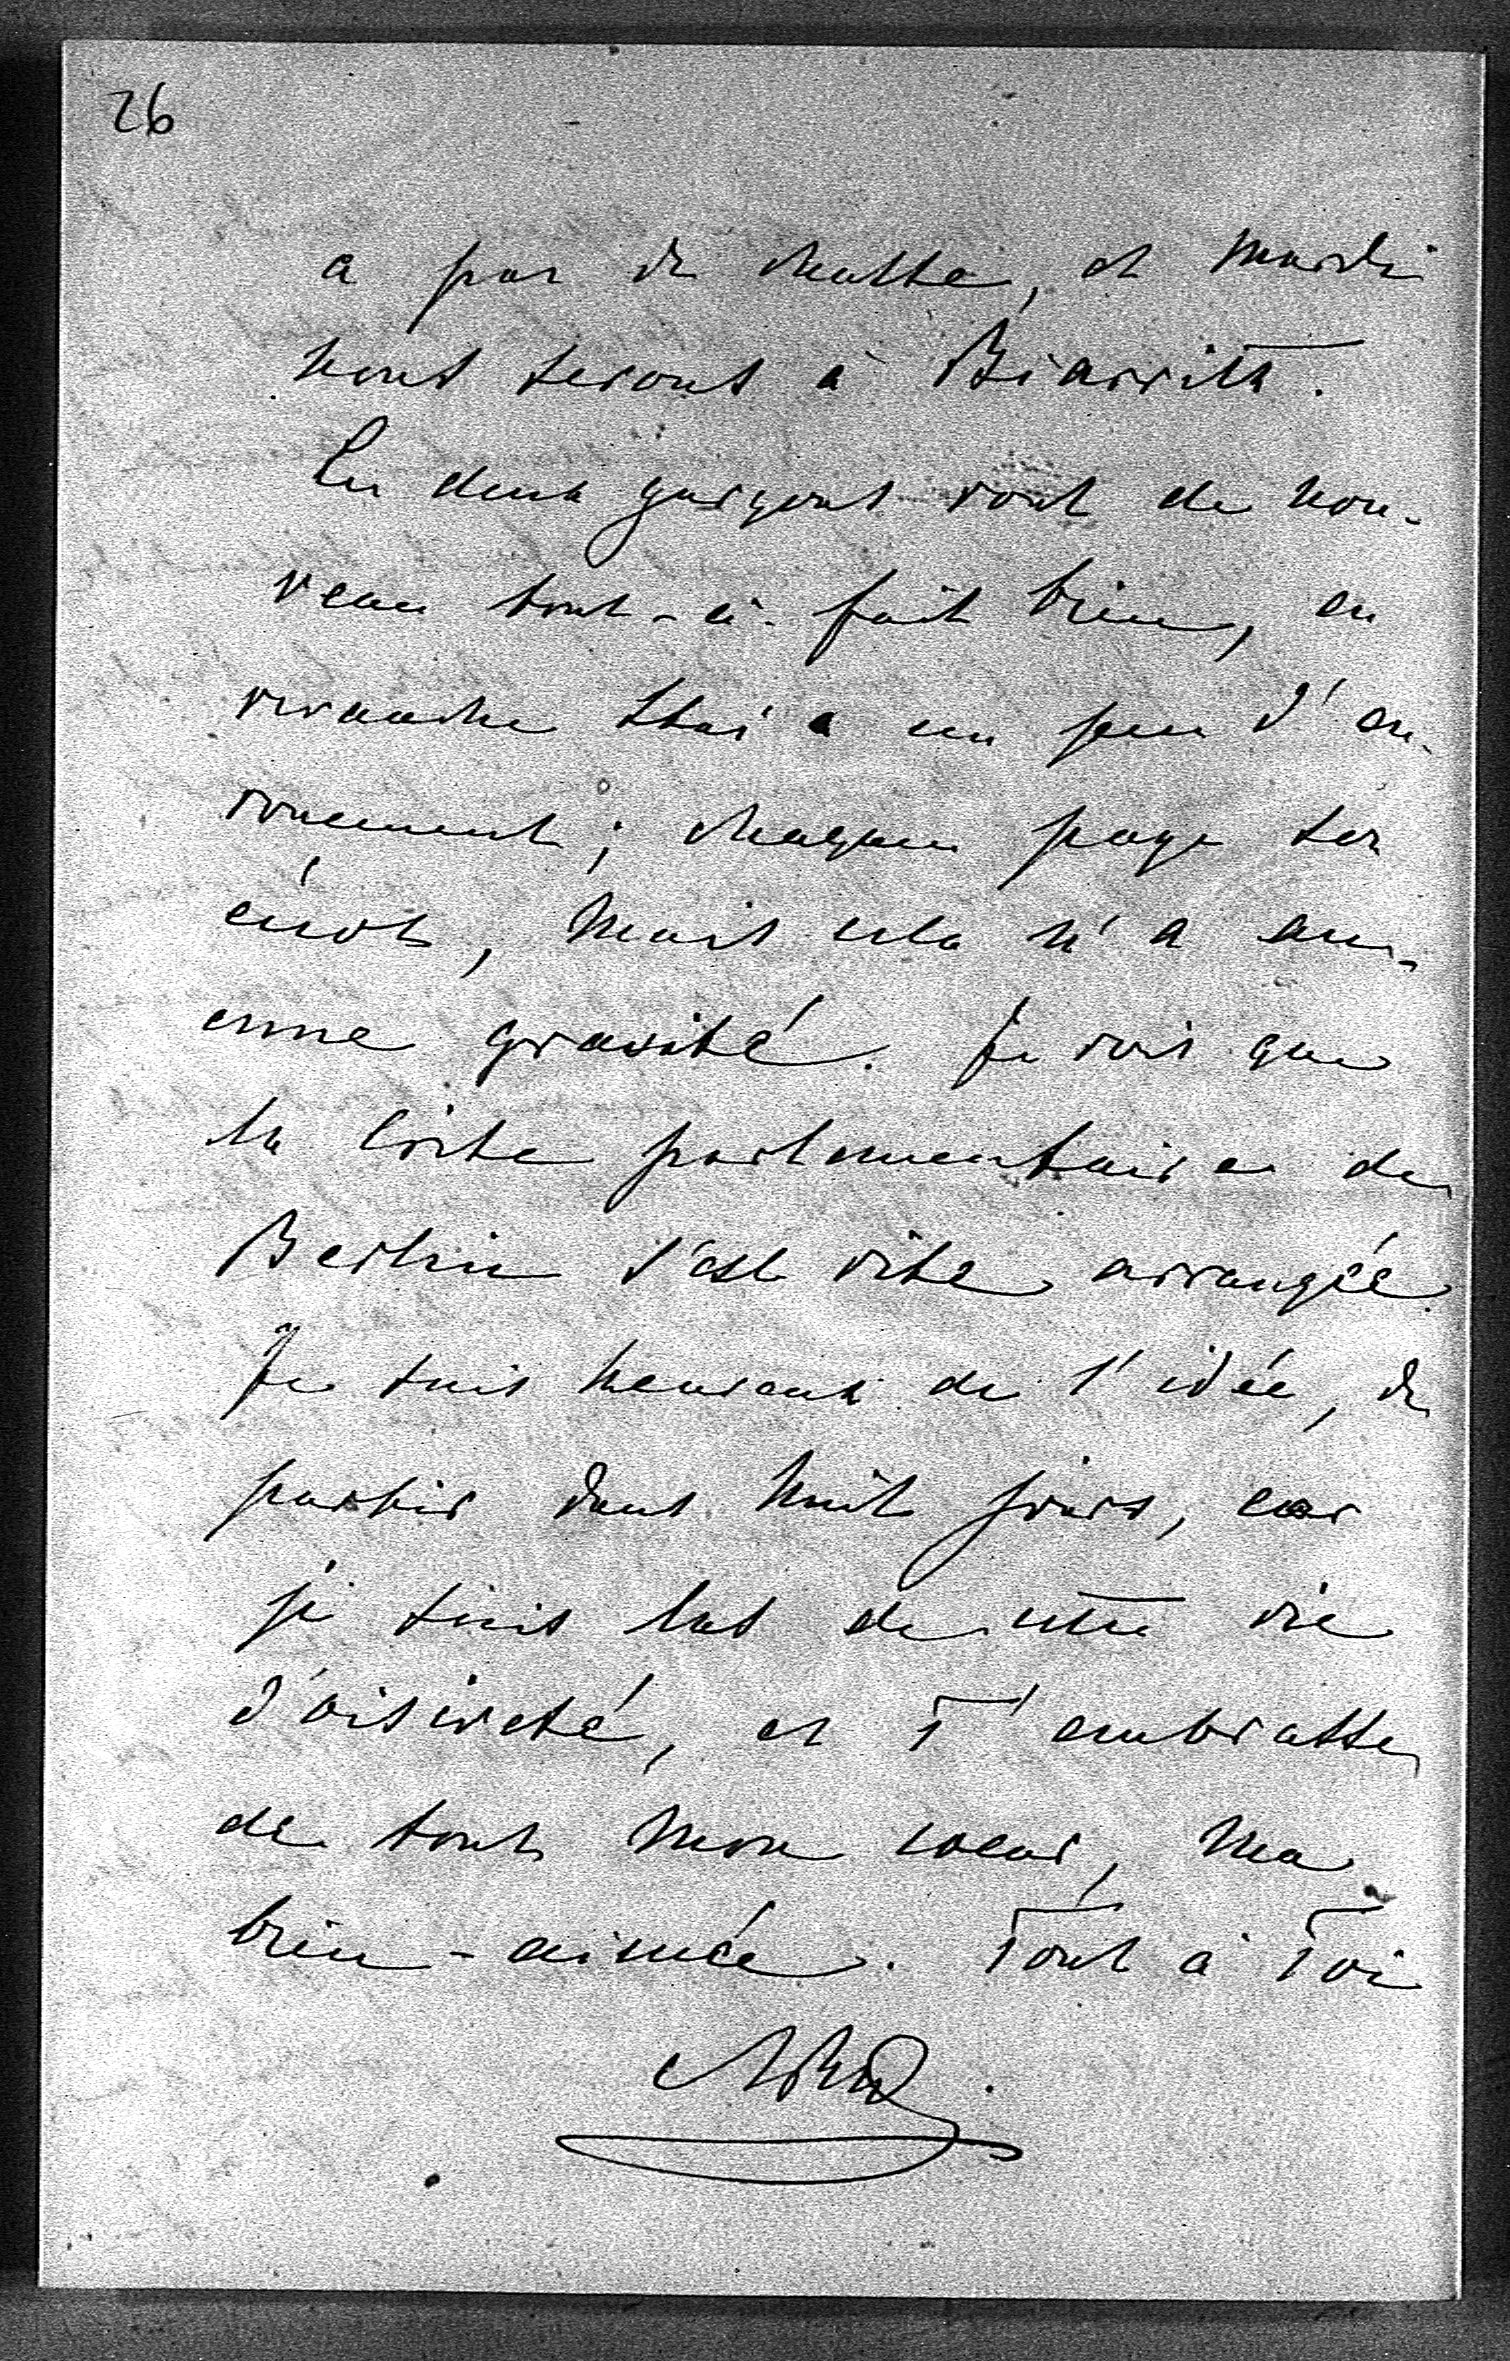 26
a pas de chasse, et mardi
nous serons à Biarritz.
Les deux garçons vont de nou-
veau tout-à-fait bien, en
revanche a un peu d'en-
rouement; chaqu'un paye son
écot, mais cela n'a au-
cune gravité. Je vois que
la crise parlementaire de
Berlin s'est vite arrangée.
Je suis heureux de l'idée, de
partir dans huit jours, car
je suis las de cette vie
d'oisiveté, et T'embrasse
de tout mon coeur, ma
bien-aimée. Tout à Toi